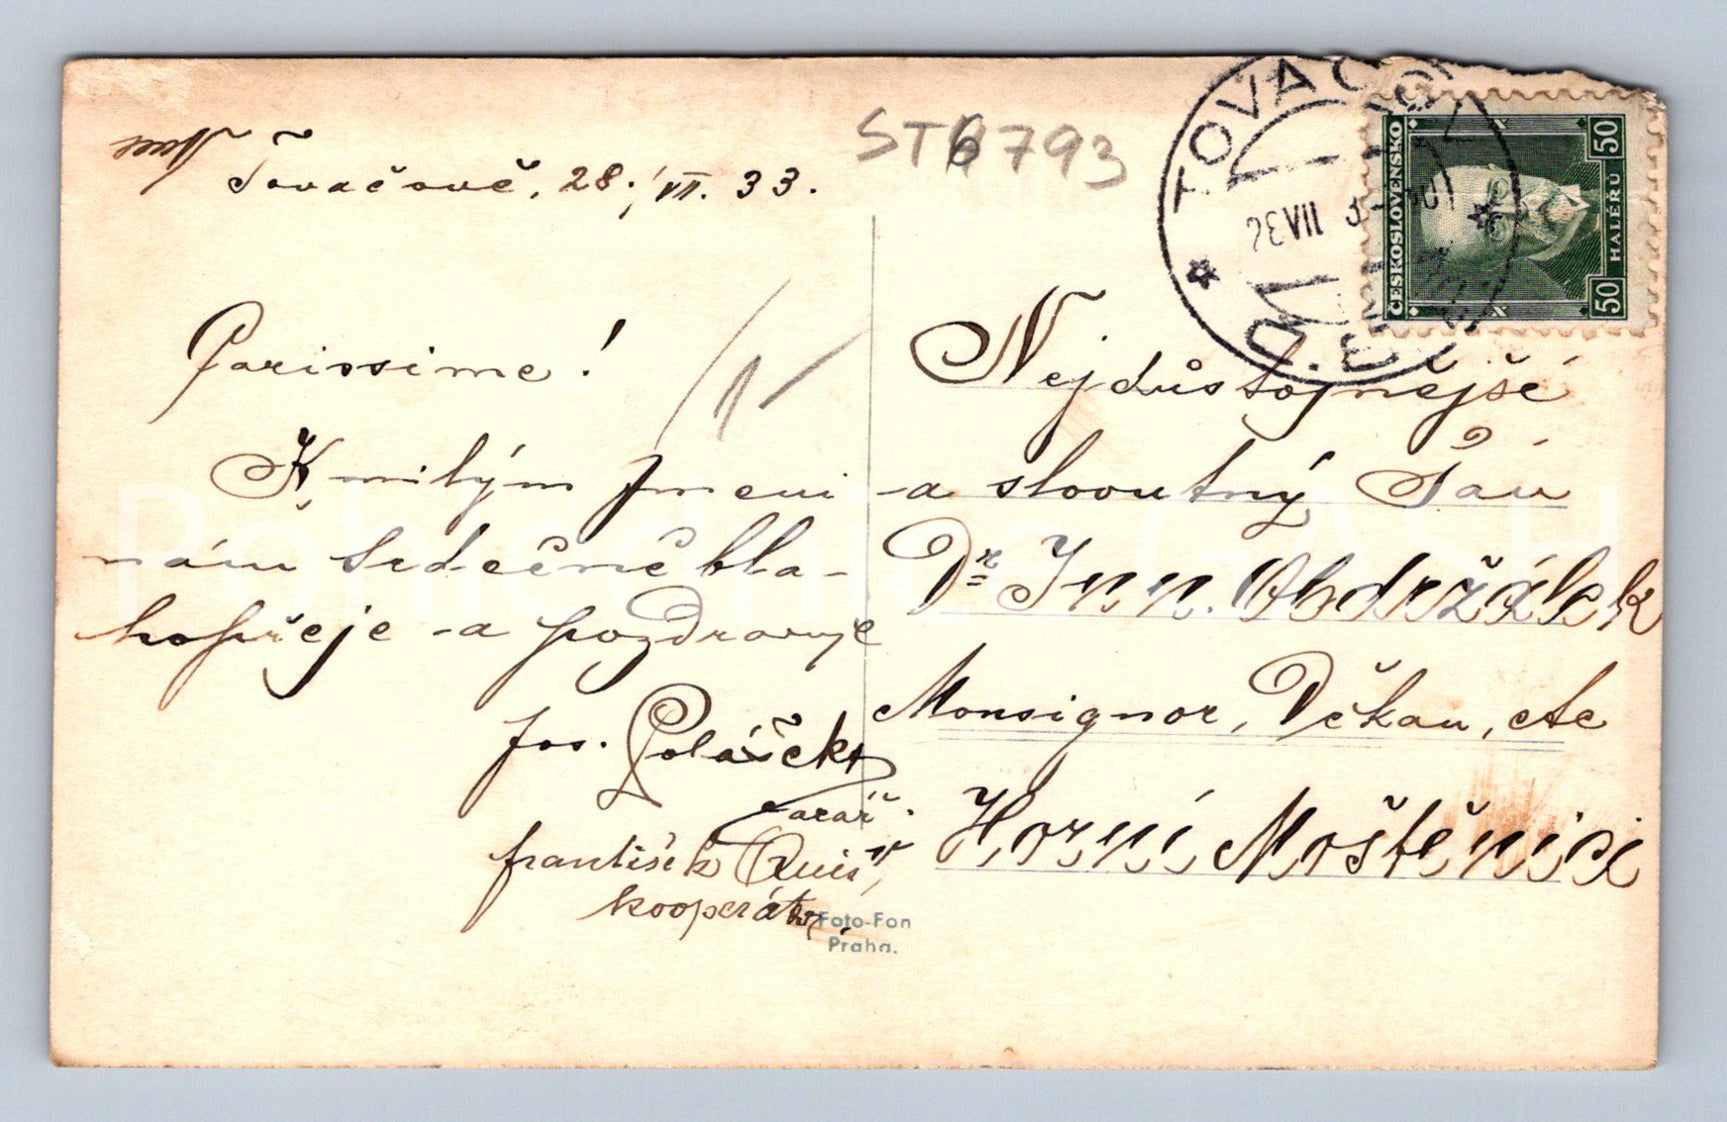 Tovačově, 28./VII. 33.
ST6793
TOVAČOV
28 VII 3
ČESKOSLOVENSKO
50 HALÉRU 50
Carissime!
K milým jmeni-
nám srdečně bla-
hopřeje a pozdravuje
Jos. Poláček
farář.
František
kooperátor
Nejdůstojnější
a slovutný Pán
Dr Inn. Obdržálek
Monsignor, Děkan, etc
v
Horní Moštěnici
Foto-Fon
Praha.